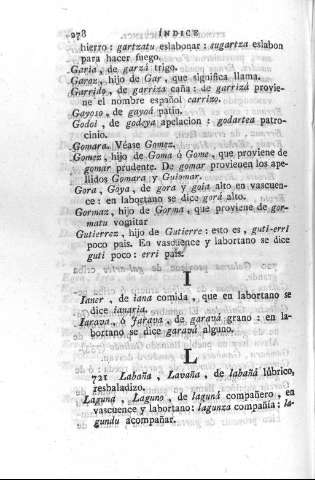 278 ÍNDICE
hierro: gartzatu eslabonar: sugartza eslabon
para hacer fuego.
Garia, de garzá trigo.
Garoz, hijo de Gar, que significa llama.
Garrido, de garriza caña: de garrizá provie-
ne el nombre español carrizo.
Gayoso, de gayoá patin.
Godoi, de godoya apelacion: godartea patro-
cinio.
Gomara. Véase Gomez.
Gomez, hijo de Goma ó Gome, que proviene de
gomar prudente. De gomar provienen los ape-
llidos Gomara y Guiomar.
Gora, Goya, de gora y goia alto en vascuen-
ce: en labortano se dice gorá alto.
Gormaz, hijo de Gorma, que proviene de gor-
matu vomitar
Gutierrez, hijo de Gutierre: esto es, guti-erri
poco pais. En vascuence y labortano se dice
guti poco: erri pais.
I
Ianer, de iana comida, que en labortano se
dice ianaria.
Iarava, ó Jarava, de garavá grano: en la-
bortano se dice garavá alguno.
L
721 Labaña, Lavaña, de labañá lúbrico,
resbaladizo.
Laguna, Laguno, de laguná compañero, en
vascuence y labortano: lagunza compañía: la-
gundu acompañar.